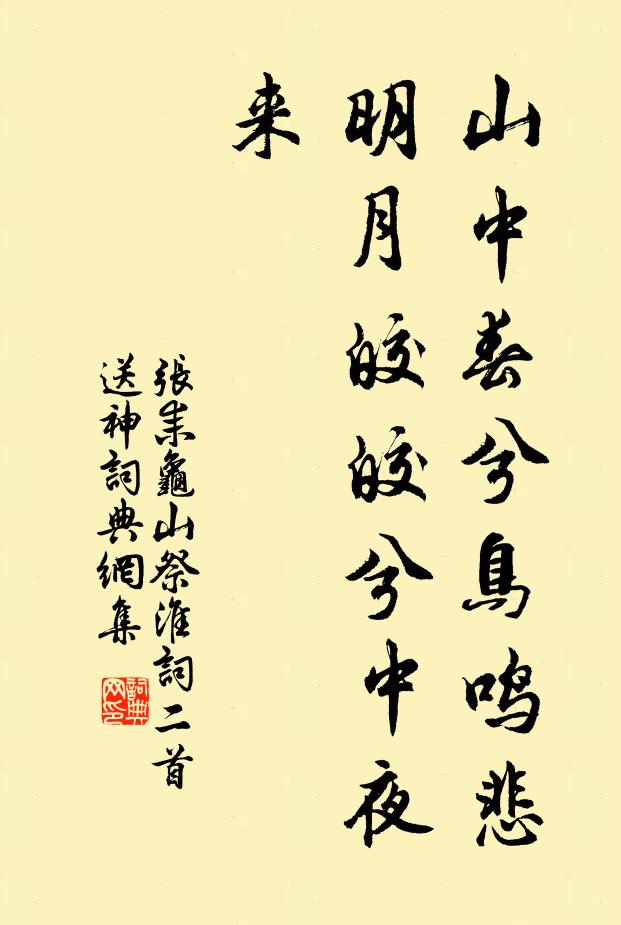 山中春兮鳥鳴悲
明月皎皎兮中夜
来
張耒龜山祭淮詞二首
送神詞典網集
詞典
网印